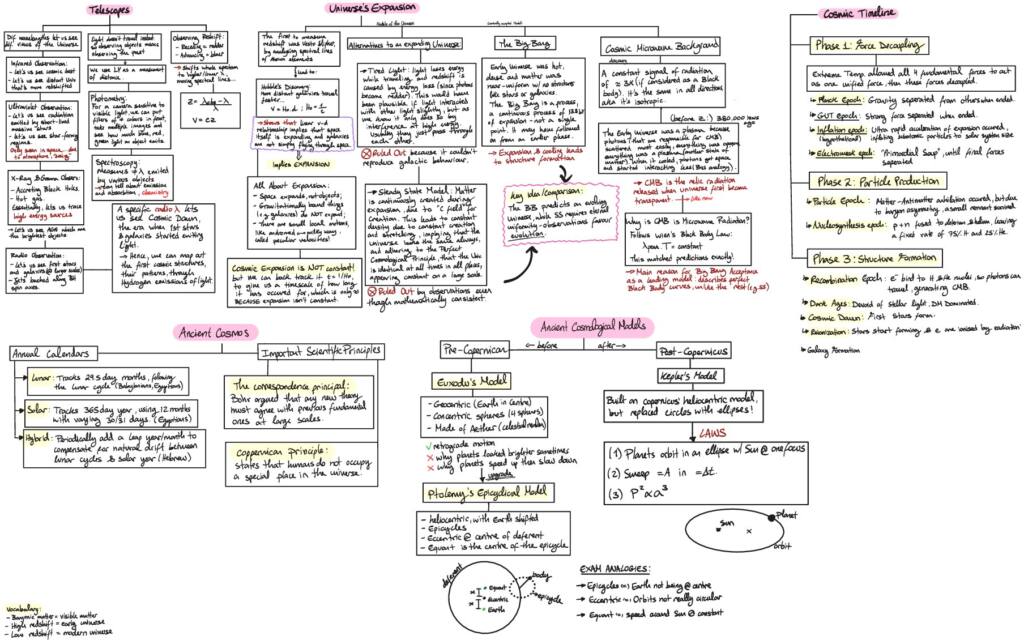 Telescopes
Diff wavelengths let us see
diff views of the Universe
Infrared Observation:
- Let's us see cosmic dust
- Let's us see distant Uni
that's more redshifted
Ultraviolet Observation:
- Let's us see radiation
emitted by short-lived
massive stars
- Let's us see star-forming
regions
Only seen in space, due
to atmosphere,
X-Ray &Gamma Observ:
- Accreting Black Holes
- Hot gas
Essentially, lets us trace
high energy sources
→ Let's us see AGN which are the
brightest objects
Radio Observation:
- Let's us see first stars
and galaxies (@ larger scales)
- Jets backed along BH
spin axes.
Light doesn't travel instant
so observing objects means
observing the past
We use LY as a measurement of
distance
Photometry:
For a camera sensitive to
visible light, we can put
filters of a colour in front,
take multiple images and
see how much blue, red,
green light an object emits.
Spectroscopy:
Measures # λ emitted
by various objects
→ can tell about emission
and absorption, chemistry
A specific radio λ lets
us see Cosmic Dawn,
the era when 1st stars
& galaxies started emitting
light.
→ Hence, we can map out
the first cosmic structures,
their patterns, through
Hydrogen emissions of light.
Observing Redshift:
- Receding = redder
- Advancing = bluer
→ Shifts whole spectrum
to higher/lower λ
moving spectral lines...
Z = λobs - λ / λ
v = cz
Universe's Expansion
The first to measure
redshift was Vesto Slipher,
by analysing spectral lines
of known elements
Lead to:
Hubble's Discovery
More distant galaxies travel
faster...
v = H₀ d ; H₀ = 1/t
→ Shows that linear v-d
relationship implies that space
itself is expanding and galaxies
are not simply flying through space
Implies EXPANSION
All About Expansion:
- Space expands, not objects;
- Gravitationally bound things
(e.g galaxies) do NOT expand;
- There are small local motions,
like andromeda → milky way,
called peculiar velocities!
Cosmic Expansion is NOT constant!
but we can back track it t = 1/H₀,
to give us a timescale of how long
it has occured for, which is only so
BECAUSE expansion isn't constant.
Models of the Universe
Alternatives to an expanding Universe
→ Tired Light: light loses energy
while travelling, and redshift is
caused by energy loss (since photons
become redder). This would have
been plausible if light interacted
with other light slightly, but as
we know it only does so by
interference, at high energy
visibility they just pass through
each other.
Ruled Out because it couldn't
reproduce galactic behaviour.
→ Steady State Model: Matter
is continuously created during
expansion, due to "C field for
Creation. This leads to constant
density due to constant creation
and stretching, implying that the
Universe looks the same always,
and adhering to the Perfect
Cosmological Principle, that the Uni
is identical at all times in all places,
appearing constant on a large scale.
Ruled Out by observations even
though mathematically consistent.
Currently accepted Models
The Big Bang
Early Universe was hot,
dense and matter was
near-uniform w/ no structure
like stars or galaxies.
The Big Bang is a process,
a continuous process of
of expansion - not a single
point. It may have followed
on from an earlier phase.
→ Expansion & cooling leads
to structure formation
Key idea/comparison:
The BB predicts an evolving
Universe, while SS requires eternal
uniformity - observations favour
evolution
Cosmic Microwave Background
A constant signal of radiation
of ≈ 3K (if considered as a Black
body). It's the same in all directions
aka it's isotropic.
(before R.:) 380,000 years
ago
The Early Universe was a plasma, because
photons (that are responsible for CMB)
scattered more easily, everything was opaque
everything was a plasma (another state of
matter). When it cooled, photons got space,
and started interacting less (less analogy)
→ CMB is the relic radiation
released when universe first became
transparent. → like now
Why is CMB is Microwave Radiation?
Follows Wien's Black Body Law:
λpeak T = constant
This matched predictions exactly!
→ Main reason for Big Bang Acceptance
as a leading model: describes perfect
Black Body curves, unlike the rest (e.g SS)
Cosmic Timeline
Phase 1: Force Decoupling
Extreme Temp allowed all 4 fundamental forces to act
as one unified force, then these forces decoupled.
↳ Planck Epoch: Gravity separated from others when ended.
↳ GUT epoch: Strong force separated when ended.
↳ Inflation epoch: Ultra rapid acceleration of expansion occurred,
(hypothetical) inflating subatomic particles to solar system size
↳ Electroweak epoch: "Primordial Soup", until final forces
separated
Phase 2: Particle Production
↳ Particle Epoch: Matter-Antimatter anhilation occured, but due
to baryon asymmetry, a small remnant survived
↳ Nucleosynthesis epoch: p+n fused to deterium & helium, leaving
a fixed rate of 75% H and 25% He.
Phase 3: Structure Formation
↳ Recombination Epoch: e⁻ bind to H & He nuclei, so photons can
travel, generating CMB.
↳ Dark Ages: Devoid of Stellar light, DM Dominated.
↳ Cosmic Dawn: First Stars form.
↳ Reionization: Stars start forming, & e⁻ are ionised by radiation
↳ Galaxy Formation
Ancient Cosmos
Annual Calendars
Lunar: Tracks 29.5 day months, following
the lunar cycle (Babylonians, Egyptians)
Solar: Tracks 365 day year, using 12 months
with varying 30/31 days. (Egyptians)
Hybrid: Periodically add a leap year/month to
compensate for natural drift between
lunar cycles & solar year (Hebrew)
Important Scientific Principles
The correspondence principal:
Bohr argued that any new theory
must agree with previous fundamental
ones at large scales.
Coppernican principle:
states that humans do not occupy
a special place in the universe.
Ancient Cosmological Models
← before after →
Pre-Copernican
Euxodu's Model
- Geocentric (Earth in Centre)
- Concentric spheres (4 spheres)
- Made of Aether (celestial realm)
✓ retrograde motion
✗ why planets looked brighter sometimes
✗ why planets speed up then slow down
upgrade
Ptolemy's Epicyclical Model
- heliocentric, with Earth shifted
- Epicycles
- Eccentric @ centre of deferent
- Equant is the centre of the epicycle
deferent
Equant
Eccentric
Earth
body
epicycle
EXAM ANALOGIES:
→ Epicycles ∾ Earth not being @ centre
→ Eccentric ∾ Orbits not really circular
→ Equant ∾ speed around Sun ≠ constant
Post-Copernicus
Kepler's Model
Built on copernicus' heliocentric model,
but replaced circles with ellipses!
LAWS
(1) Planets orbit in an ellipse w/ Sun @ one focus
(2) Sweep = A in = Δt.
(3) P² ∝ a³
Sun
Planet
orbit
Vocabulary:
- Baryonic matter = visible matter
- High redshift = early universe
- Low redshift = modern universe